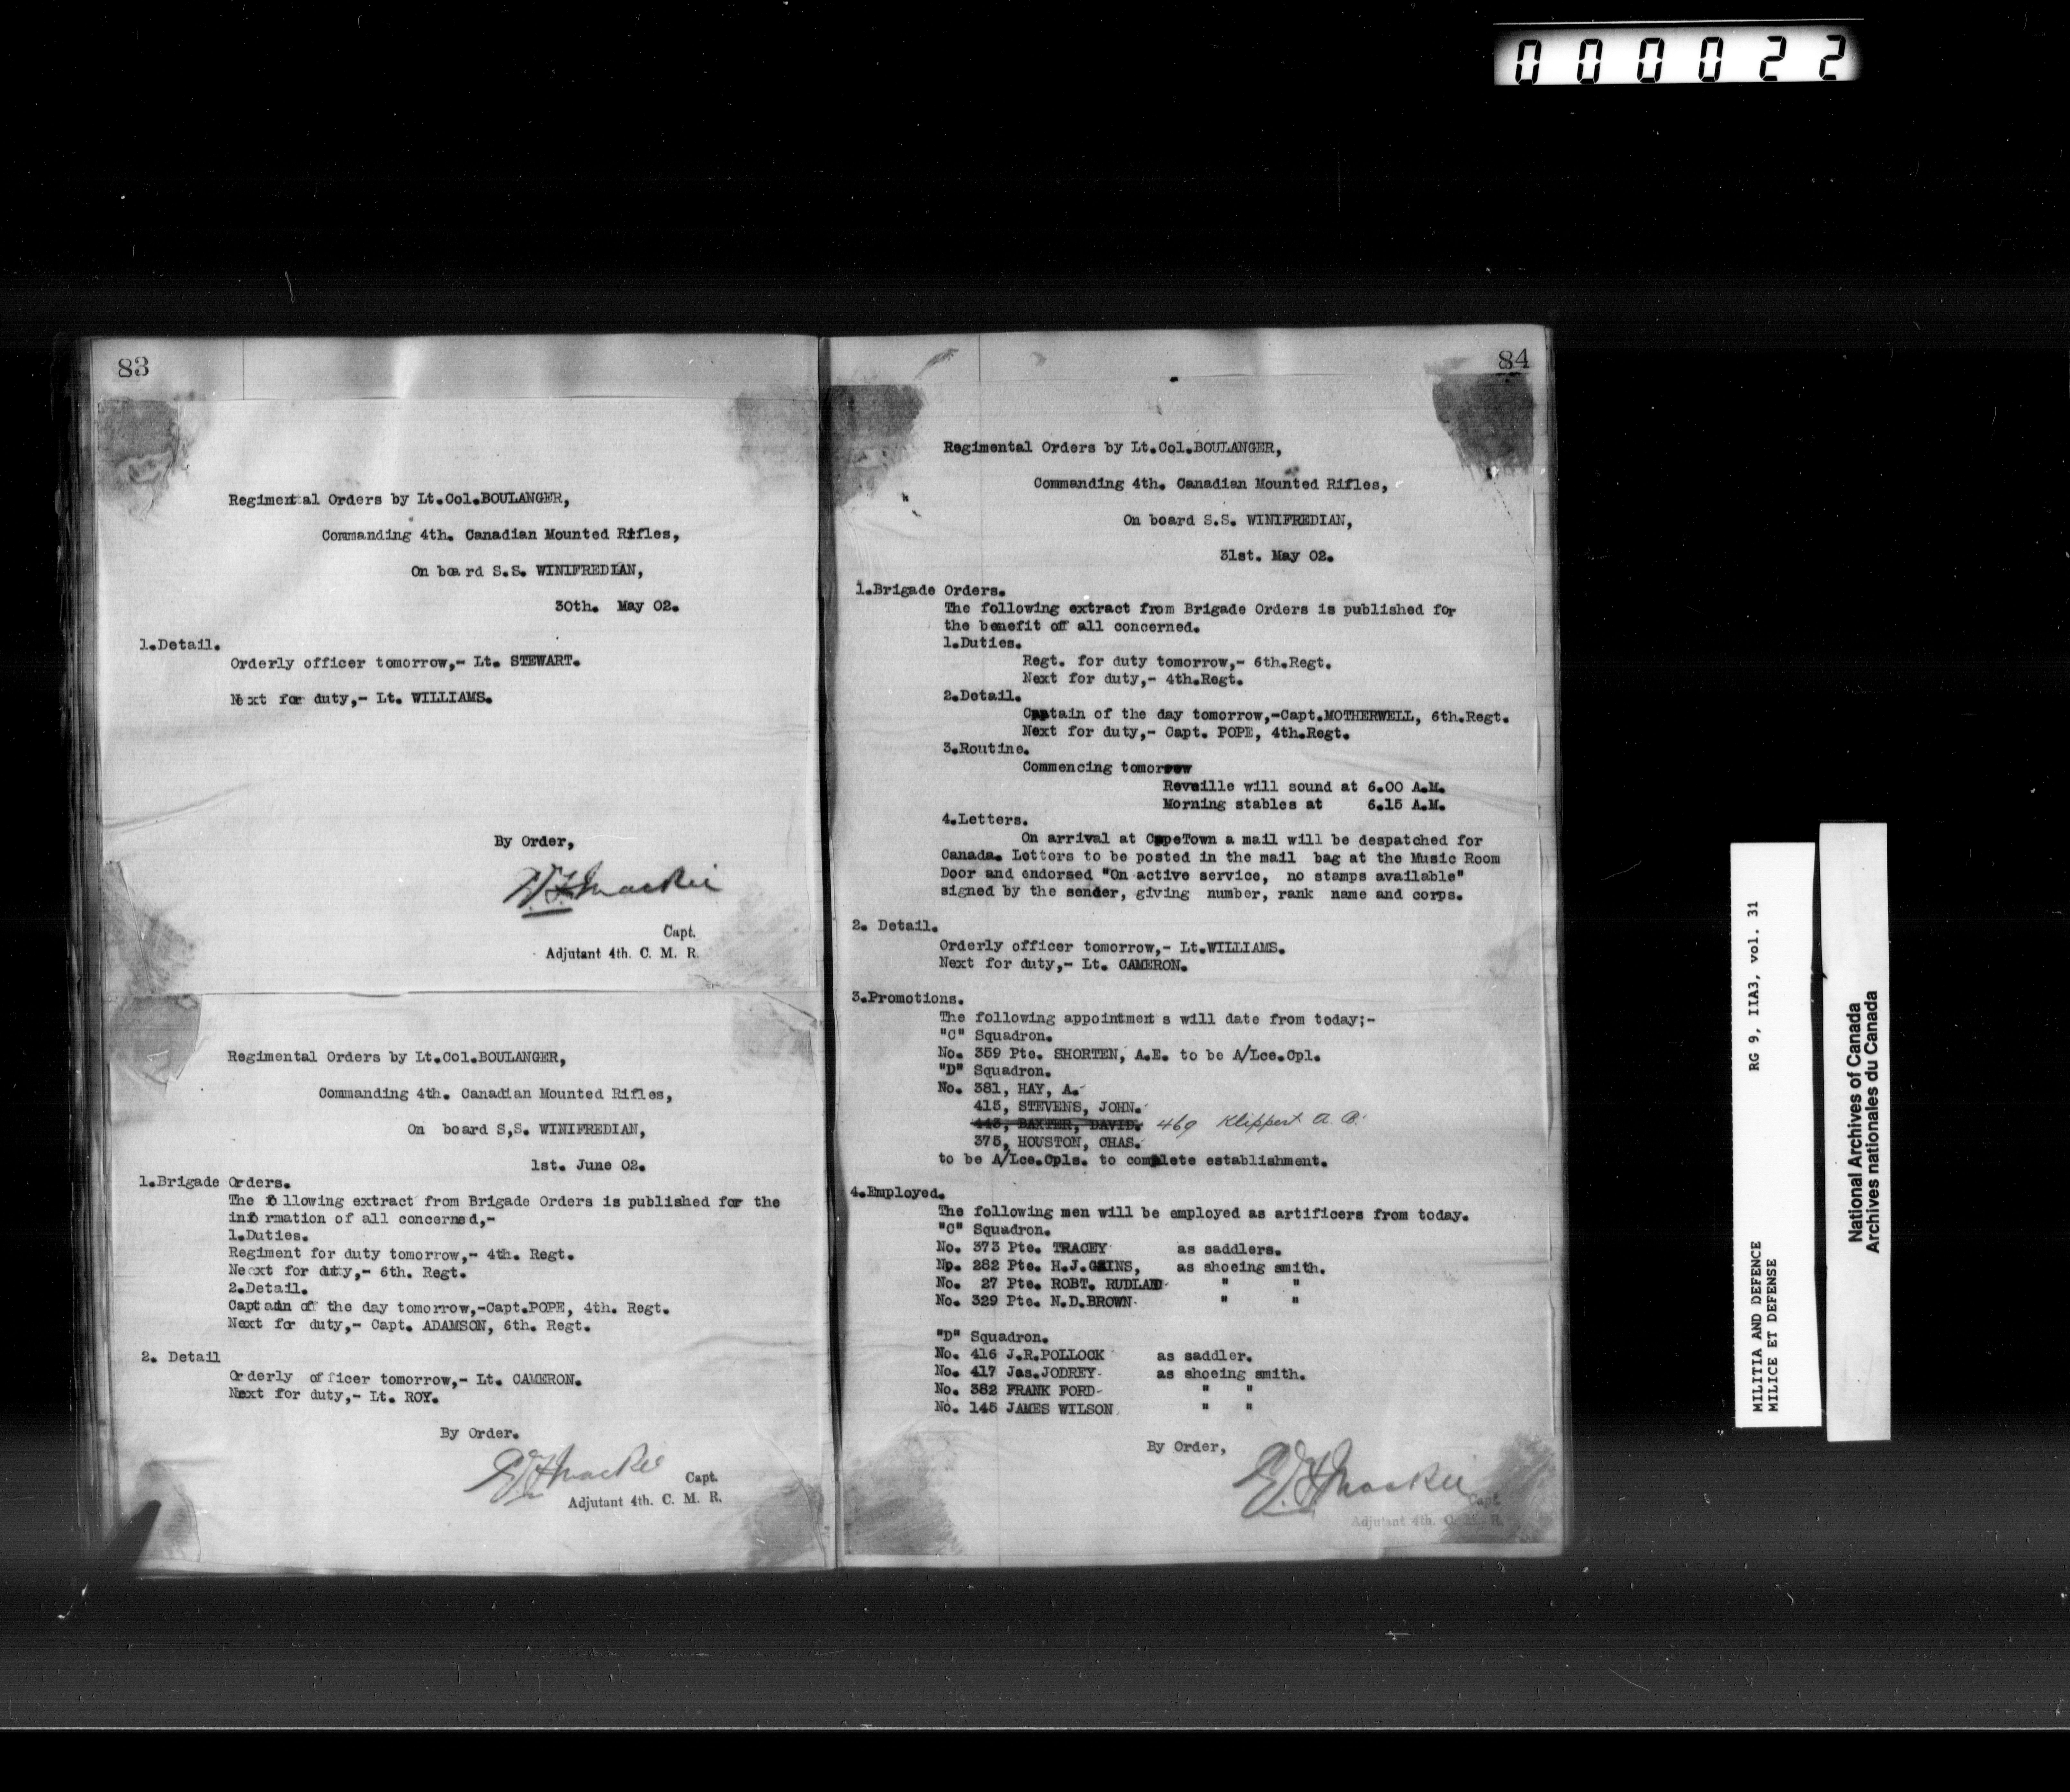 000022
83
Regimental Orders by Lt.Col.BOULANGER,
Commanding 4th. Canadian Mounted Rifles,
On board S.S. WINIFREDIAN,
30th. May 02.
1.Detail.
Orderly officer tomorrow,- Lt. STEWART.
Next for duty,- Lt. WILLIAMS.
By Order,
Capt.
Adjutant 4th. C. M. R.
Regimental Orders by Lt.Col.BOULANGER,
Commanding 4th. Canadian Mounted Rifles,
On board S,S. WINIFREDIAN,
1st. June 02.
1.Brigade Orders.
The following extract from Brigade Orders is published for the
information of all concerned,-
1.Duties.
Regiment for duty tomorrow,- 4th. Regt.
Next for duty,- 6th. Regt.
2.Detail.
Captain of the day tomorrow,-Capt.POPE, 4th. Regt.
Next for duty,- Capt. ADAMSON, 6th. Regt.
2. Detail
Orderly officer tomorrow,- Lt. CAMERON.
Next for duty,- Lt. ROY.
By Order.
Capt.
Adjutant 4th. C. M. R.
84
Regimental Orders by Lt.Col.BOULANGER,
Commanding 4th. Canadian Mounted Rifles,
On board S.S. WINIFREDIAN,
31st. May 02.
1.Brigade Orders.
The following extract from Brigade Orders is published for
the benefit of all concerned.
1.Duties.
Regt. for duty tomorrow,- 6th.Regt.
Next for duty,- 4th.Regt.
2.Detail.
Captain of the day tomorrow,-Capt.MOTHERWELL, 6th.Regt.
Next for duty,- Capt. POPE, 4th.Regt.
3.Routine.
Commencing tomorrow
Reveille will sound at 6.00 A.M.
Morning stables at 6.15 A.M.
4.Letters.
On arrival at CapeTown a mail will be despatched for
Canada. Letters to be posted in the mail bag at the Music Room
Door and endorsed "On active service, no stamps available"
signed by the sender, giving number, rank name and corps.
2. Detail.
Orderly officer tomorrow,- Lt.WILLIAMS.
Next for duty,- Lt. CAMERON.
3.Promotions.
The following appointments will date from today;-
"C" Squadron.
No. 359 Pte. SHORTEN, A.E. to be A/Lce.Cpl.
"D" Squadron.
No. 381, HAY, A.
415, STEVENS, JOHN.
443, BAXTER, DAVID. 469 Klippert A. B.
375, HOUSTON, CHAS.
to be A/Lce.Cpls. to complete establishment.
4.Employed.
The following men will be employed as artificers from today.
"C" Squadron.
No. 373 Pte. TRACEY as saddlers.
No. 282 Pte. H.J.GAINS, as shoeing smith.
No. 27 Pte. ROBT. RUDLAND " "
No. 329 Pte. N.D.BROWN " "
"D" Squadron.
No. 416 J.R.POLLOCK as saddler.
No. 417 Jas.JODREY as shoeing smith.
No. 382 FRANK FORD " "
No. 145 JAMES WILSON " "
By Order,
Capt.
Adjutant 4th. C. M. R.
MILITIA AND DEFENCE RG 9, IIA3, vol. 31
MILICE ET DEFENSE
National Archives of Canada
Archives nationales du Canada